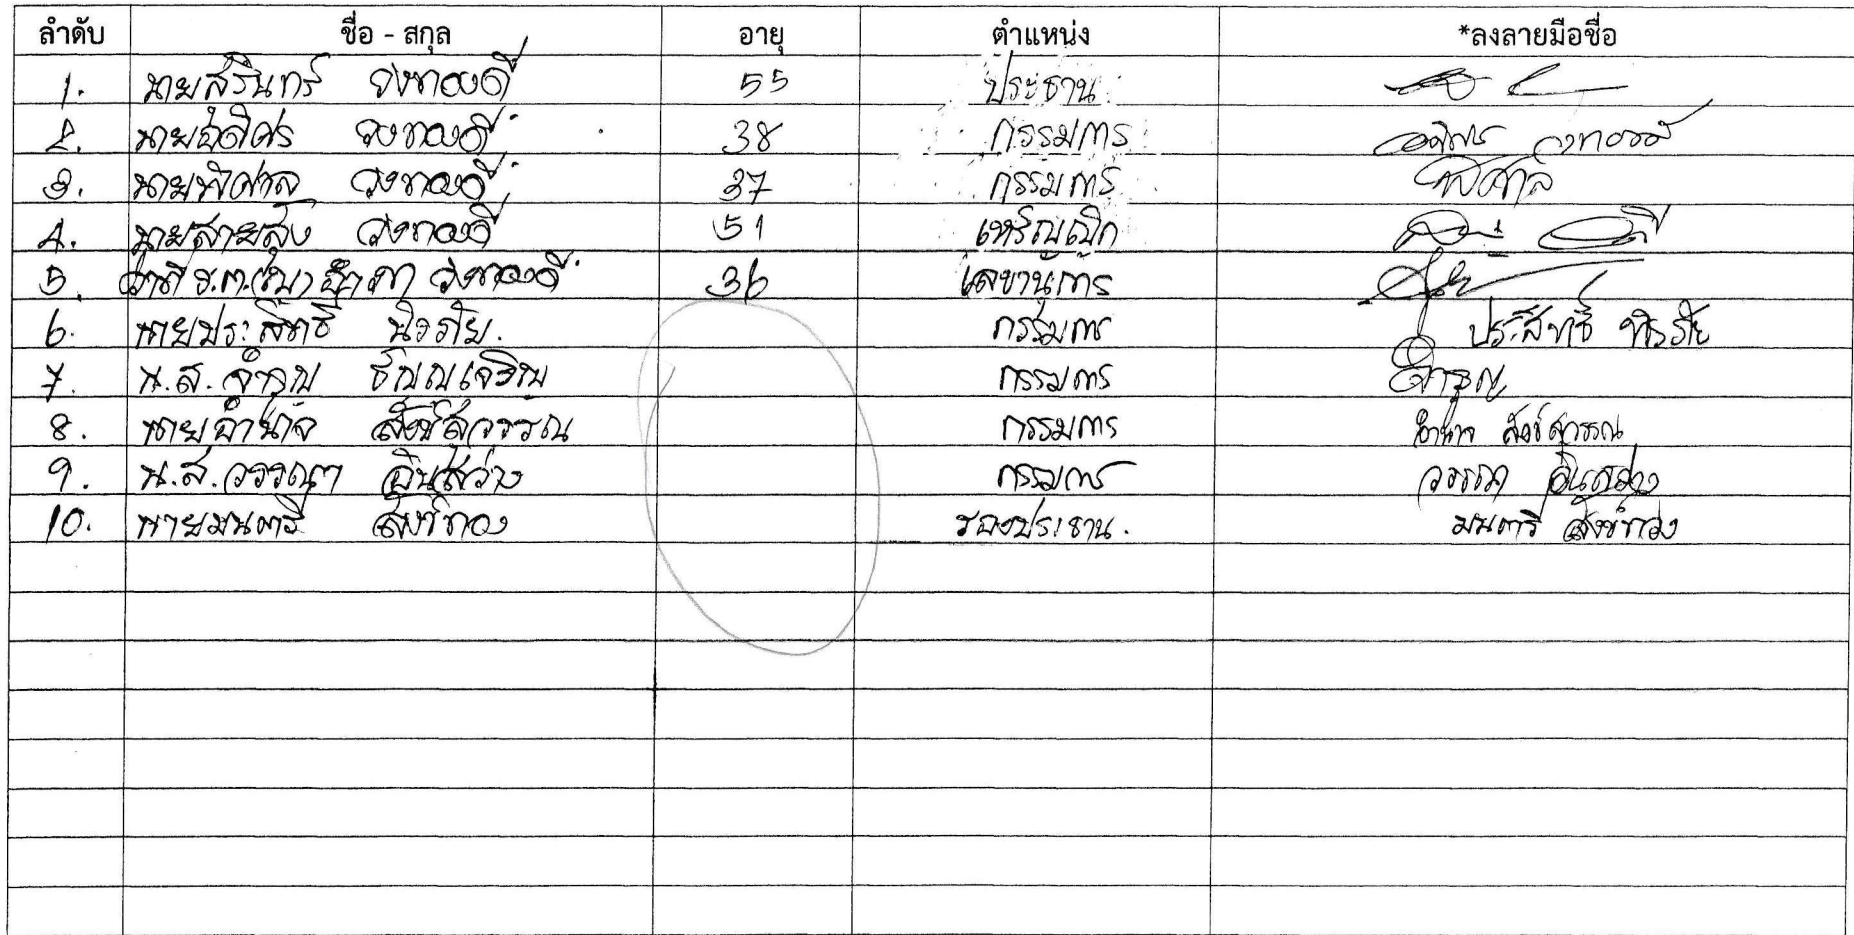 ลำดับ ชื่อ - สกุล อายุ ตำแหน่ง *ลงลายมือชื่อ
1. นายสรินทร์ วงทองดี 55 ประธาน
2. นายอดิศร วงทองดี 38 กรรมการ อดิศร วงทองดี
3. นายพิศาล วงทองดี 37 กรรมการ พิศาล
4. นายสายสุ่ง วงทองดี 51 เหรัญญิก
5. ว่าที่ ร.ต. วงทองดี 36 เลขานุการ
6. นายประสิทธิ์ นิรภัย. กรรมการ ประสิทธิ์ นิรภัย
7. น.ส. จำรูญ ธัญญเจริญ กรรมการ จำรูญ
8. นายอำนาจ สังข์สุวรรณ กรรมการ อำนาจ สังข์สุวรรณ
9. น.ส. วรรณา อินสว่าง กรรมการ วรรณา อินสว่าง
10. นายมนตรี สังข์ทอง รองประธาน. มนตรี สังข์ทอง